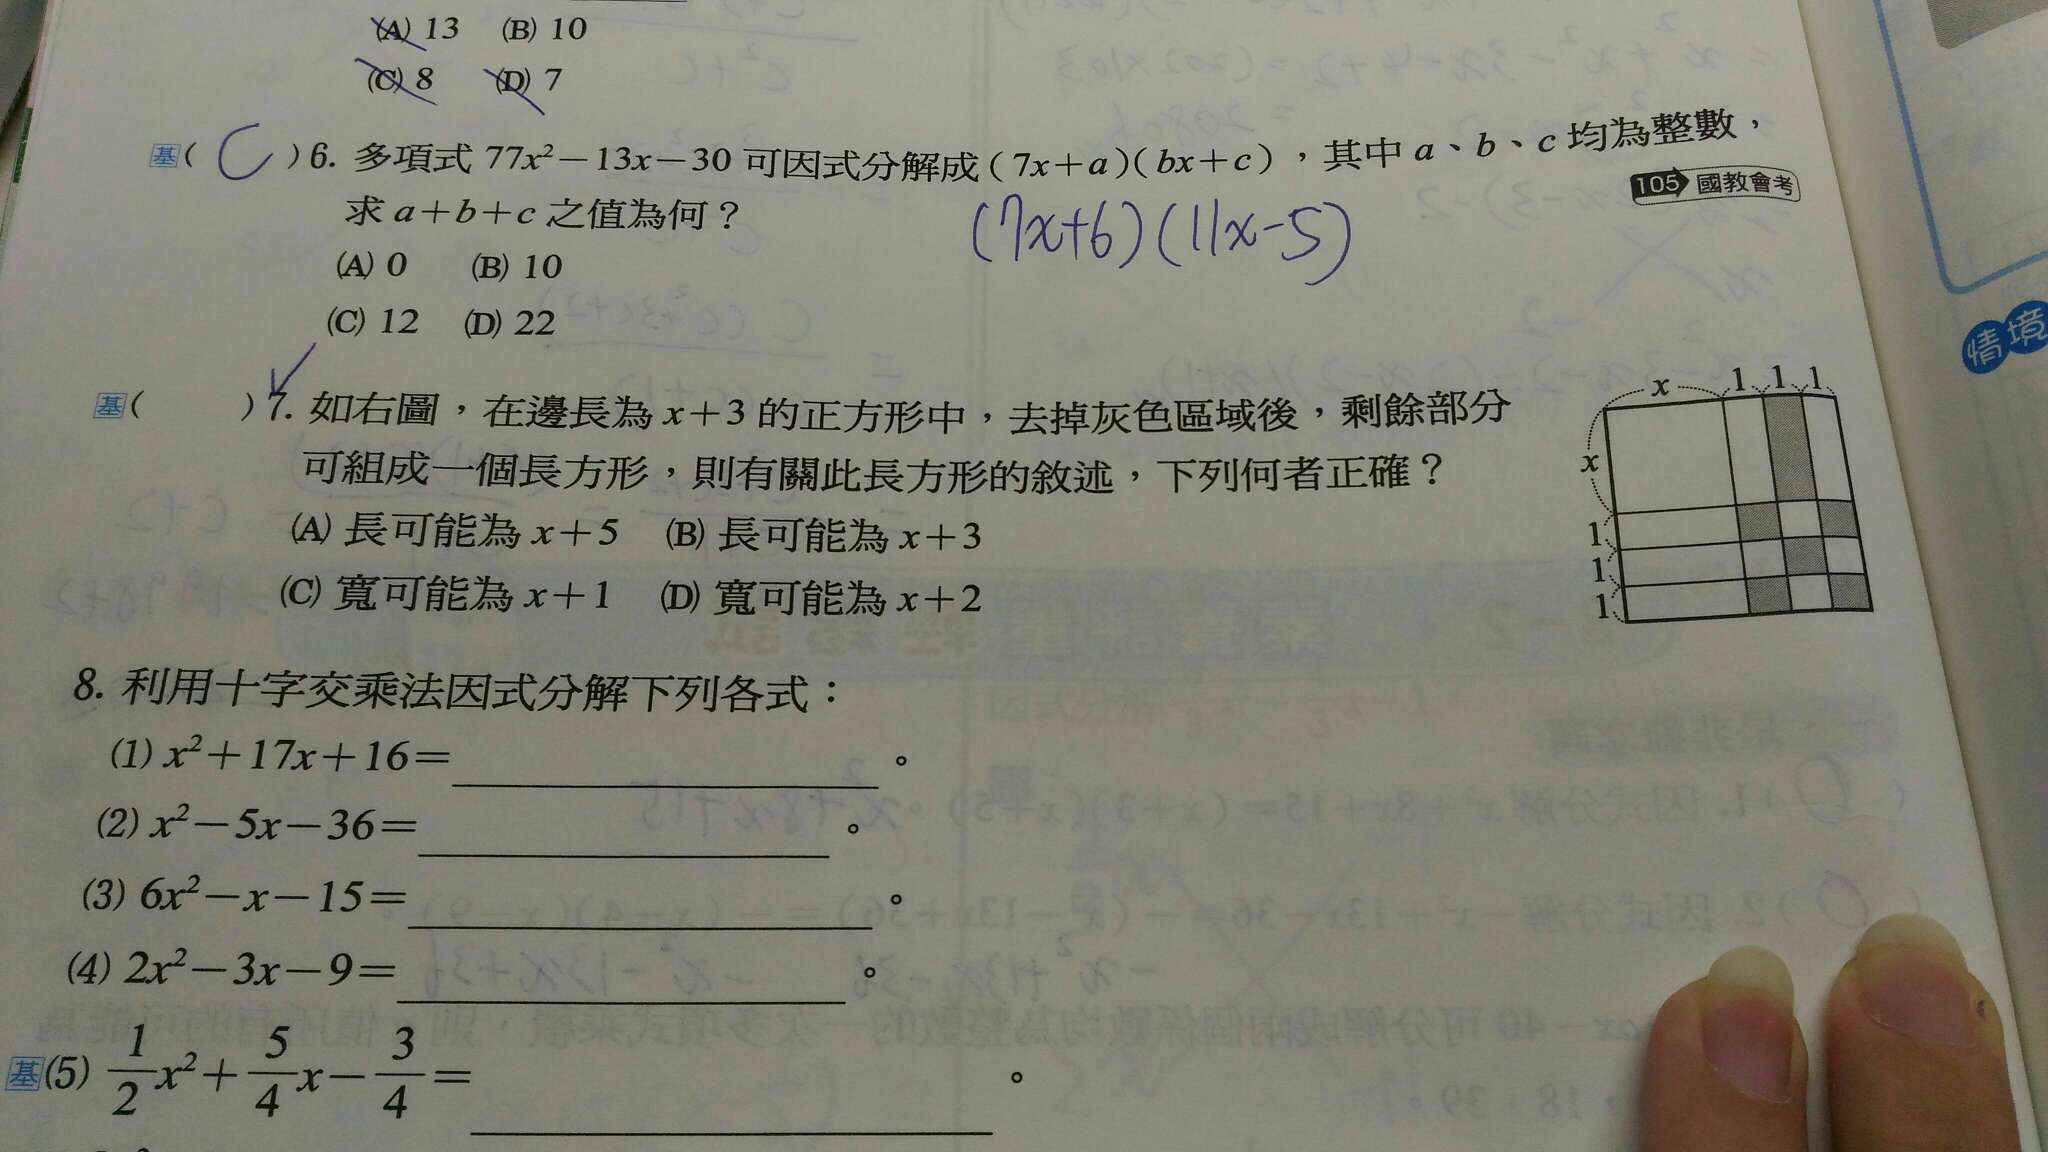 (A) 13 (B) 10
(C) 8 (D) 7
基( C )6. 多項式 77x²－13x－30 可因式分解成(7x＋a)(bx＋c)，其中 a、b、c 均為整數，
求 a＋b＋c 之值為何？
105 國教會考
(7x+6)(11x-5)
(A) 0 (B) 10
(C) 12 (D) 22
基( )7. 如右圖，在邊長為 x＋3 的正方形中，去掉灰色區域後，剩餘部分
可組成一個長方形，則有關此長方形的敘述，下列何者正確？
(A) 長可能為 x＋5 (B) 長可能為 x＋3
(C) 寬可能為 x＋1 (D) 寬可能為 x＋2
x 1 1 1
x
1
1
1
8. 利用十字交乘法因式分解下列各式：
(1) x²＋17x＋16＝ 。
(2) x²－5x－36＝ 。
(3) 6x²－x－15＝ 。
(4) 2x²－3x－9＝ 。
基(5) 1/2 x²＋5/4 x－3/4＝ 。
情境